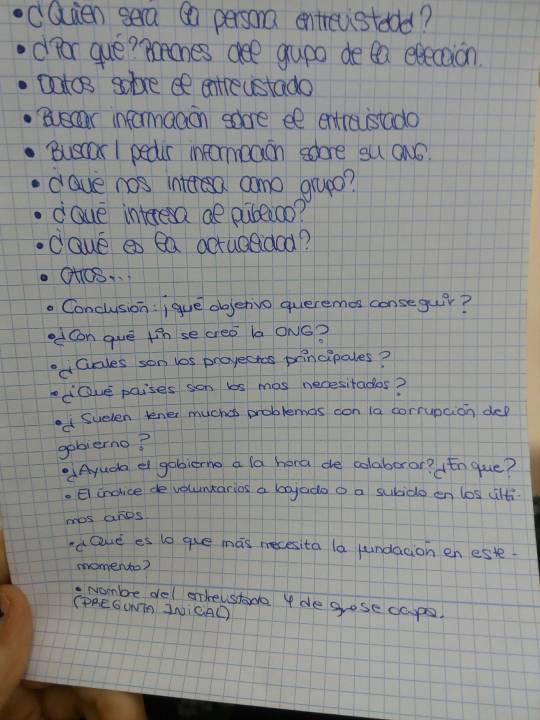 • ¿Quién será la persona entrevistada?
• ¿Por qué? Razones del grupo de la elección.
• Datos sobre el entrevistado
• Buscar información sobre el entrevistado
• Buscar / pedir información sobre su ONG.
• ¿Qué nos interesa como grupo?
• ¿Qué interesa al público?
• ¿Qué es la actualidad?
• Otros...
• Conclusión: ¡qué objetivo queremos conseguir?
• ¿Con qué fin se creó la ONG?
• ¿Cuales son los proyectos principales?
• ¿Qué paises son los mas necesitados?
• ¿Suelen tener muchos problemas con la corrupción del
gobierno?
• ¿Ayuda el gobierno a la hora de colaborar? ¿En que?
• El índice de voluntarios a bajado o a subido en los últi-
mos años.
• ¿Qué es lo que más necesita la fundación en este-
momento?
• Nombre del entrevistado y de se
(PREGUNTA INICIAL)